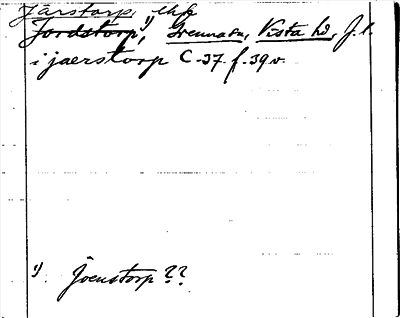 Järstorp,
Jordstorp, ¹) Grenna sn, Vista hd, J. l.
i jaerstorp C-37 f. 39 v.
¹). Joenstorp??